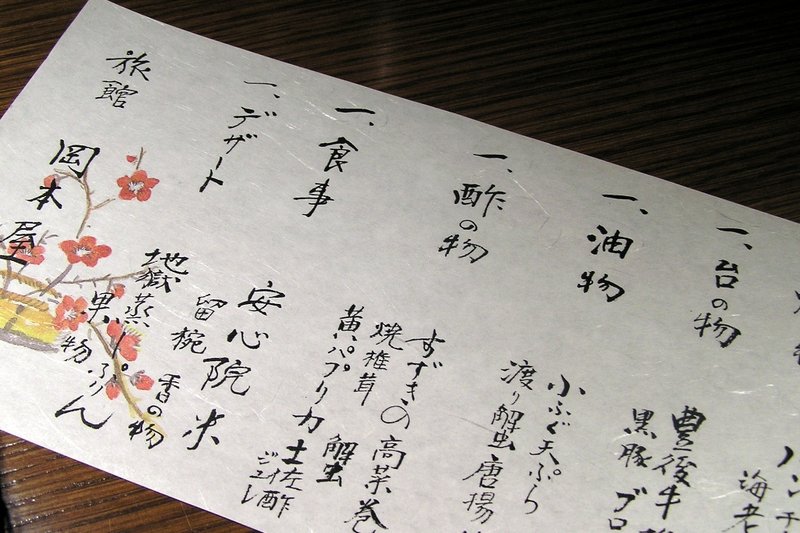 海老
一、台の物
豊後牛
黒豚 ブロ
一、油物
小ふぐ天ぷら
渡り蟹 唐揚
一、酢の物
すずきの高菜巻
焼椎茸 蟹
黄パプリカ 土佐酢
ジュレ
一、食事
安心院米
留椀 香の物
一、デザート
地獄蒸しぷりん
果物
旅館
岡本屋